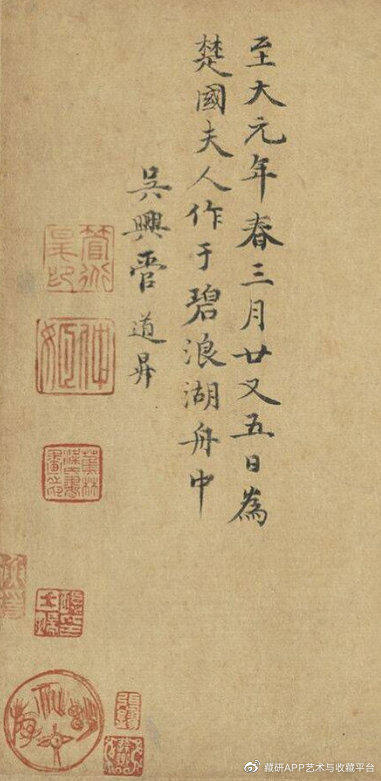 至大元年春三月廿又五日為
楚國夫人作于碧浪湖舟中
吳興管道昇
仲姬
蕉林梁氏書畫之印
藏研APP艺术与收藏平台